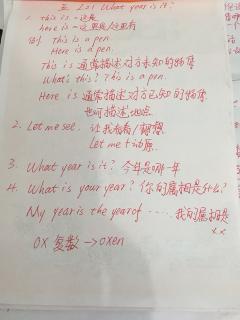 五 L21 What year is it?
1. this is 一这是
here is 一这里是/这里有
例 This is a pen.
Here is a pen.
This is 通常描述对方未知的物体
What's this? This is a pen.
Here is 通常描述对方已知的物体
也可描述地点
2. Let me see. 让我看看/想想
Let me + 动原.
3. What year is it? 今年是哪一年
4. What is your year? 你的属相是什么?
My year is the year of ...... 我的属相是
××
OX 复数 → oxen